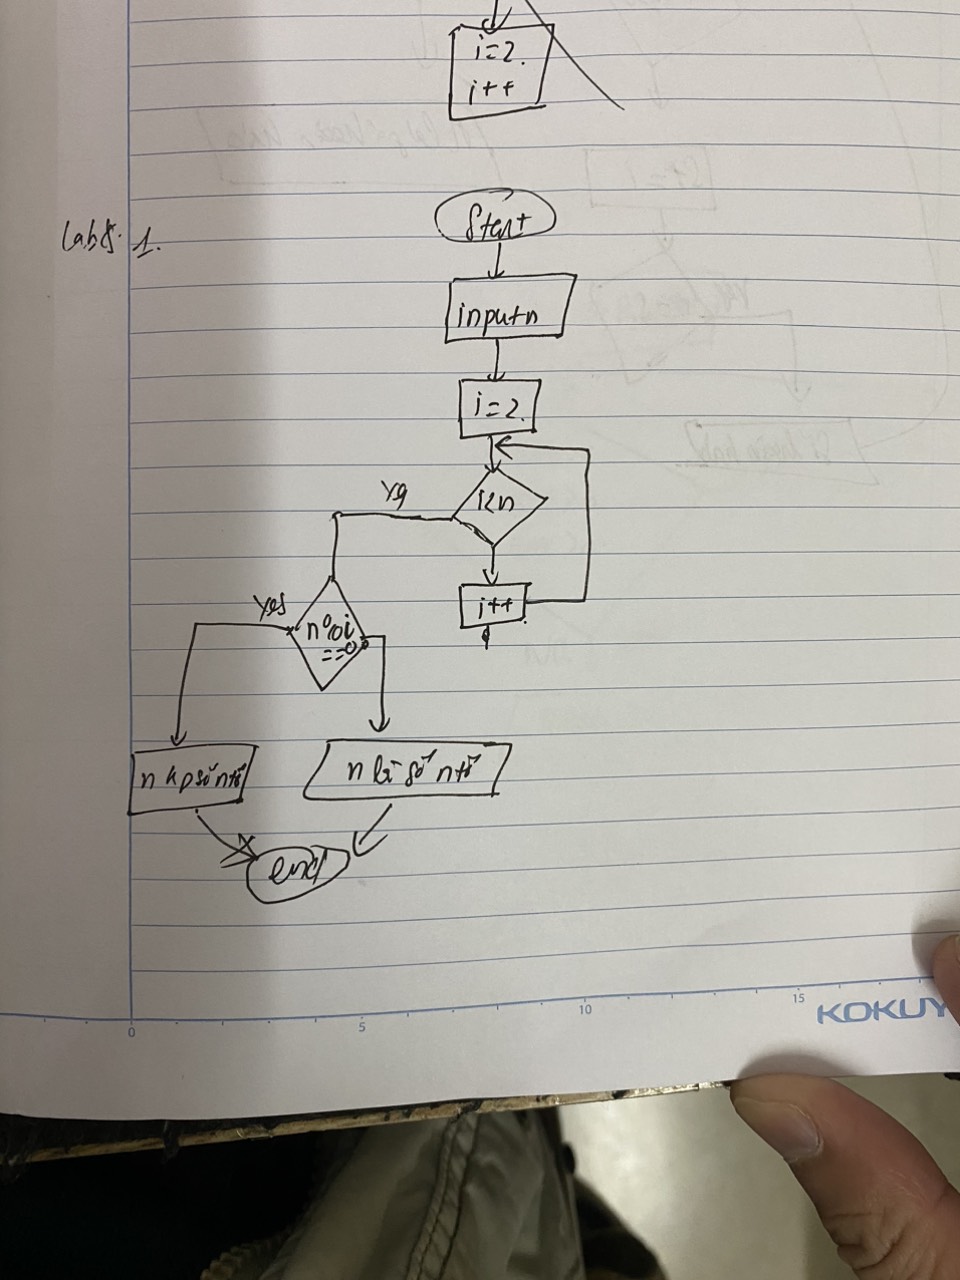 i=2.
i++
Lab5. 1.
Start
input n
i=2.
i<n
Yes
i++
Yes
n%i
==0
n kp số ntố
n là số ntố
end
0 5 10 15
KOKUY